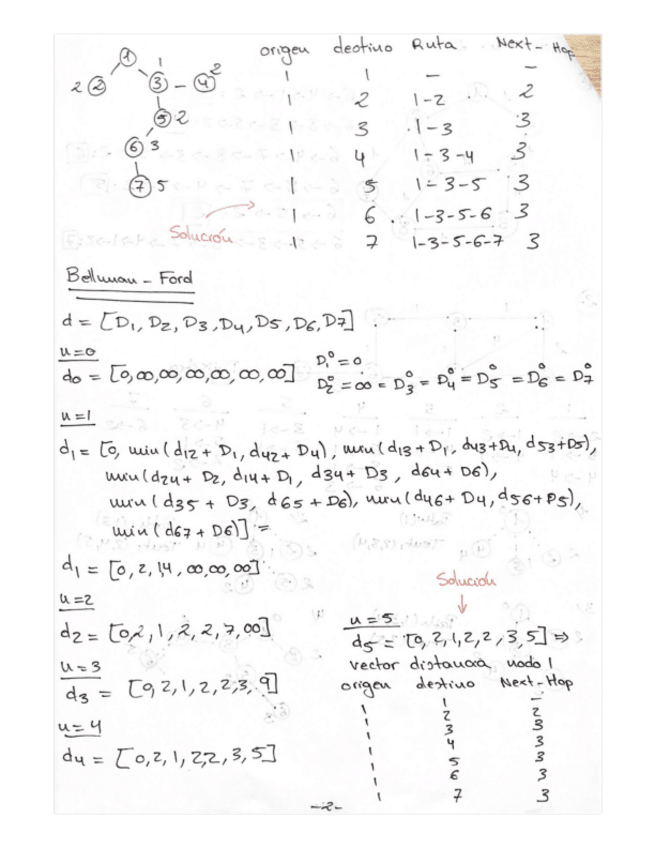 origen destino Ruta Next-Hop
1 1 - -
1 2 1-2 2
1 3 1-3 3
1 4 1-3-4 3
1 5 1-3-5 3
1 6 1-3-5-6 3
1 7 1-3-5-6-7 3
1
1
2 2
3 4 2
5 2
6 3
7 5
Solución
Bellman-Ford
d = [D1, D2, D3, D4, D5, D6, D7]
u=0
d0 = [0,∞,∞,∞,∞,∞,∞] D1⁰=0
D2⁰ = ∞ = D3⁰ = D4⁰ = D5⁰ = D6⁰ = D7⁰
u=1
d1 = [0, min(d12 + D1, d42 + D4), min(d13 + D1, d43+D4, d53+D5),
min(d24+ D2, d14+ D1, d34+ D3, d64+ D6),
min(d35 + D3, d65 + D6), min(d46+ D4, d56+D5),
min(d67 + D6)] =
d1 = [0,2,1,4,∞,∞,∞]
u=2
d2 = [0,2,1,2,2,7,∞]
u=3
d3 = [0,2,1,2,2,3,9]
u=4
d4 = [0,2,1,2,2,3,5]
Solución
u=5
d5 = [0,2,1,2,2,3,5] ⇒
vector distancia nodo 1
origen destino Next-Hop
1 1 -
1 2 2
1 3 3
1 4 3
1 5 3
1 6 3
1 7 3
-2-